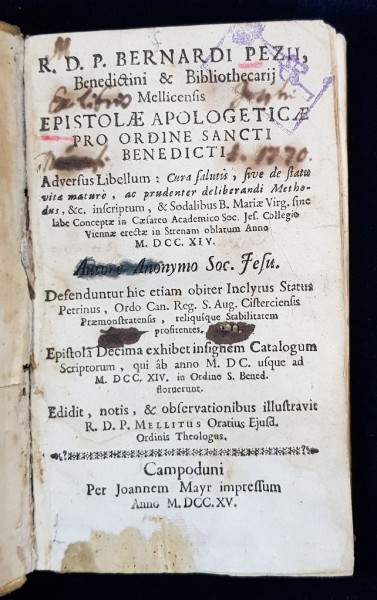 R. D. P. BERNARDI PEZII,
Benedictini & Bibliothecarij
Mellicensis
EPISTOLÆ APOLOGETICÆ
PRO ORDINE SANCTI
BENEDICTI
Adversus Libellum: Cura salutis, sive de statu
vitæ maturè, ac prudenter deliberandi Metho-
dus, &c. inscriptum, & Sodalibus B. Mariæ Virg. sine
labe Conceptæ in Cæsareo Academico Soc. Jes. Collegio
Viennæ erectæ in Strenam oblatum Anno
M. DCC. XIV.
Autore Anonymo Soc. Jesu.
Defenduntur hic etiam obiter Inclytus Status
Petrinus, Ordo Can. Reg. S. Aug. Cisterciensis
Præmonstratensis, reliquique Stabilitatem
profitentes.
Epistola Decima exhibet insignem Catalogum
Scriptorum, qui ab anno M. DC. usque ad
M. DCC. XIV. in Ordine S. Bened.
floruerunt.
Edidit, notis, & observationibus illustravit
R. D. P. MELLITUS Oratius Ejusd.
Ordinis Theologus.
Campoduni
Per Joannem Mayr impressum
Anno M. DCC. XV.